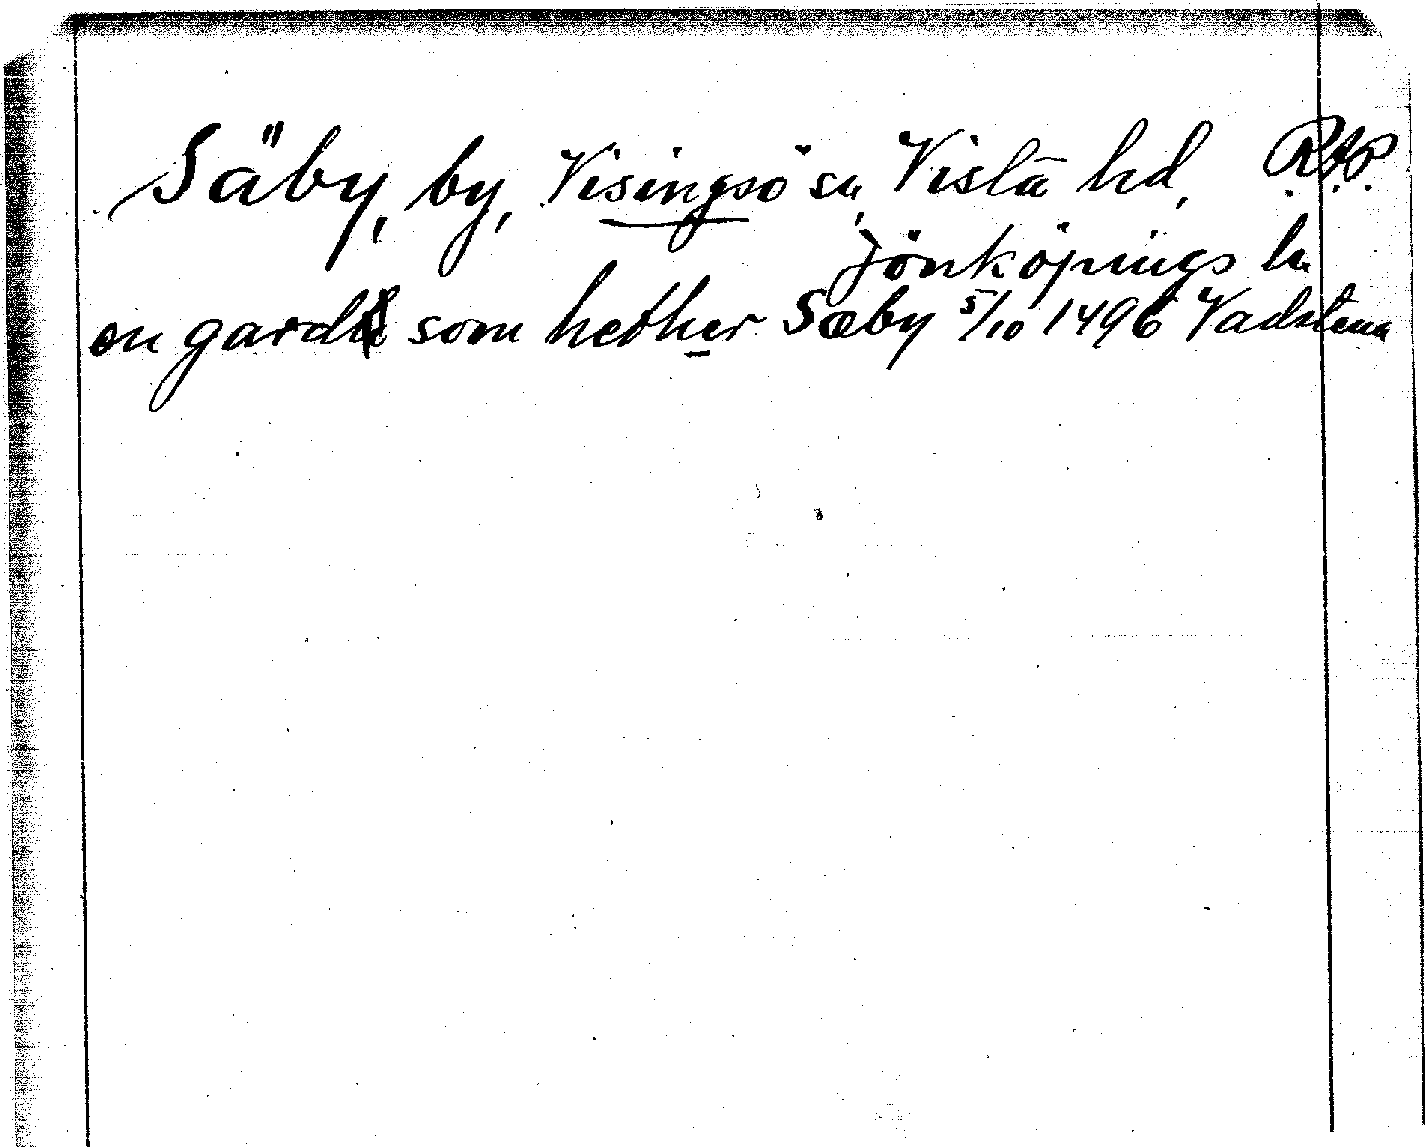 Säby, by, Visingsö sn, Vista hd, R.A.P.
Jönköpings ln
en gardh som hether Sæby 5/10 1496 Vadstena